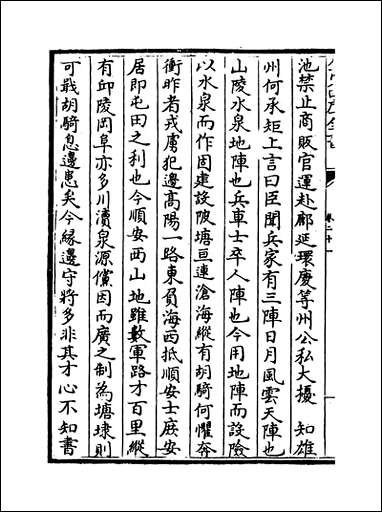 池禁止商販官運赴鄜延環慶等州公私大擾　知雄
州何承矩上言曰臣聞兵家有三陣日月風雲天陣也
山陵水泉地陣也兵車士卒人陣也今用地陣而設險
以水泉而作固建設陂塘亘連滄海縱有胡騎何懼奔
衝昨者戎虜犯邊高陽一路東負海西抵順安士庶安
居即屯田之利也今順安西山地雖數軍路才百里縱
有邱陵岡阜亦多川瀆泉源儻因而廣之制為塘埭則
可戢胡騎息邊患矣今緣邊守將多非其才心不知書
卷二十一